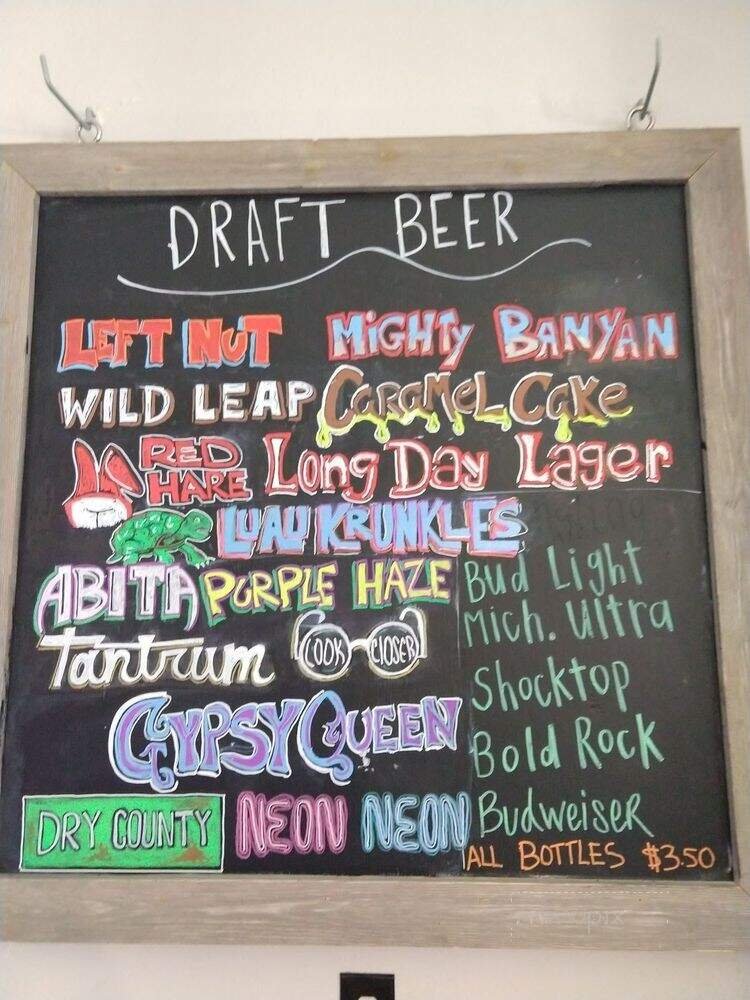 DRAFT BEER
LEFT NUT MiGHTy BANYAN
WILD LEAP CARAMEL CAKE
RED HARE Long Day Lager
LUAU KRUNKLES
ABITA PURPLE HAZE
Tantrum LOOK CLOSER
GYPSY QUEEN
DRY COUNTY NEON NEON
Bud Light
Mich. Ultra
Shocktop
Bold Rock
Budweiser
ALL BOTTLES $3.50